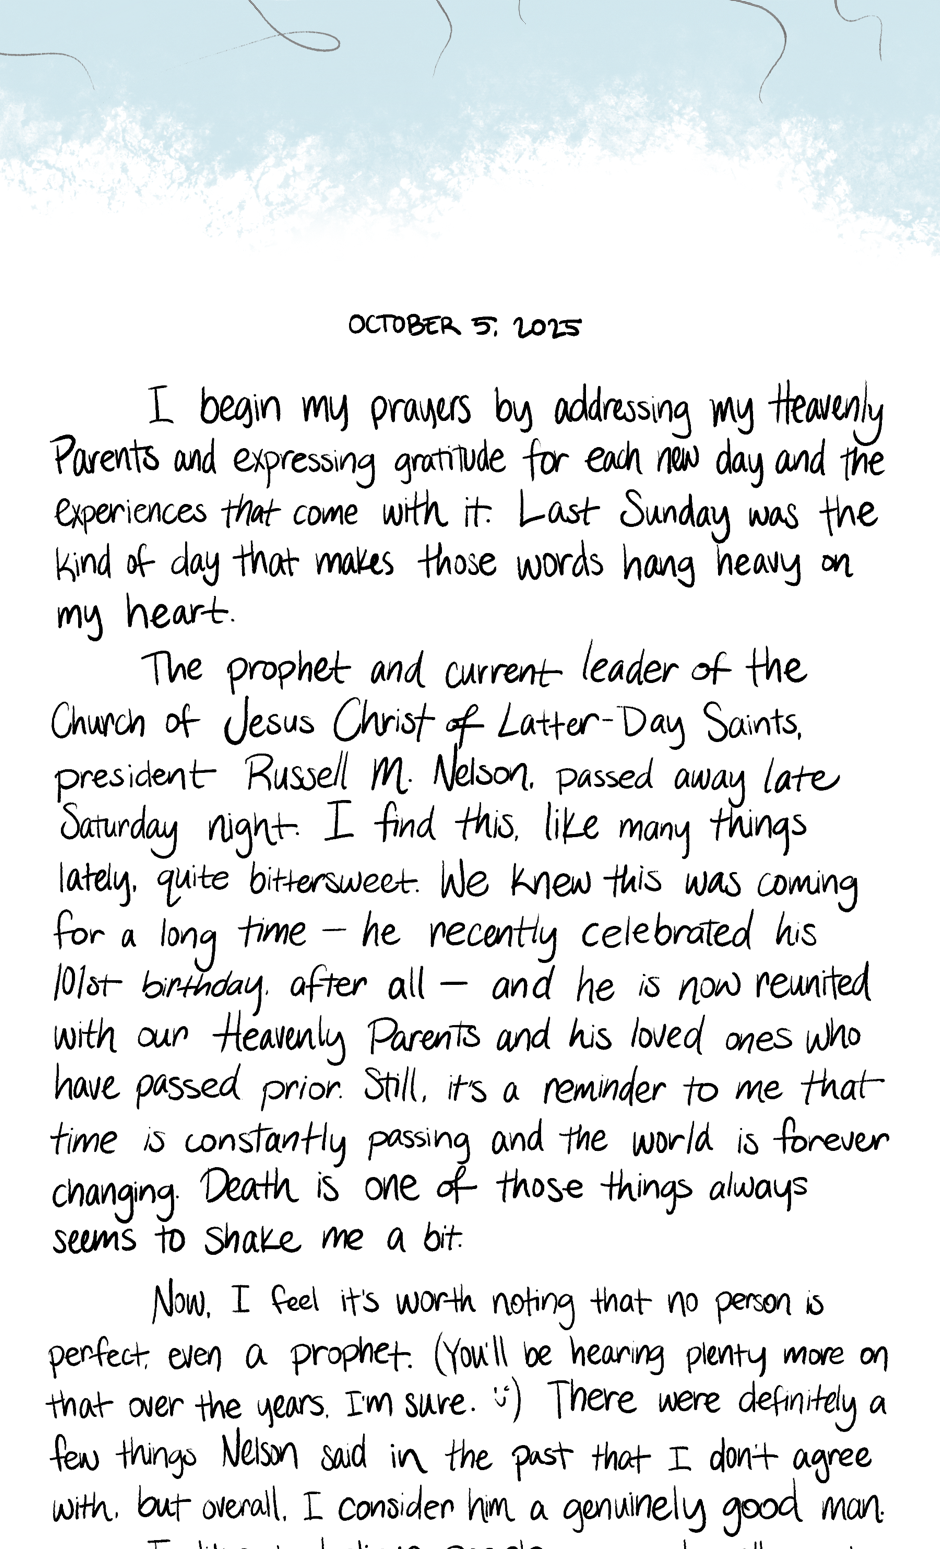 OCTOBER 5, 2025
I begin my prayers by addressing my Heavenly
Parents and expressing gratitude for each new day and the
experiences that come with it. Last Sunday was the
kind of day that makes those words hang heavy on
my heart.
The prophet and current leader of the
Church of Jesus Christ of Latter-Day Saints,
president Russell M. Nelson, passed away late
Saturday night. I find this, like many things
lately, quite bittersweet. We knew this was coming
for a long time — he recently celebrated his
101st birthday, after all — and he is now reunited
with our Heavenly Parents and his loved ones who
have passed prior. Still, it's a reminder to me that
time is constantly passing and the world is forever
changing. Death is one of those things always
seems to shake me a bit.
Now, I feel it's worth noting that no person is
perfect, even a prophet. (You'll be hearing plenty more on
that over the years, I'm sure. :) ) There were definitely a
few things Nelson said in the past that I don't agree
with, but overall, I consider him a genuinely good man.